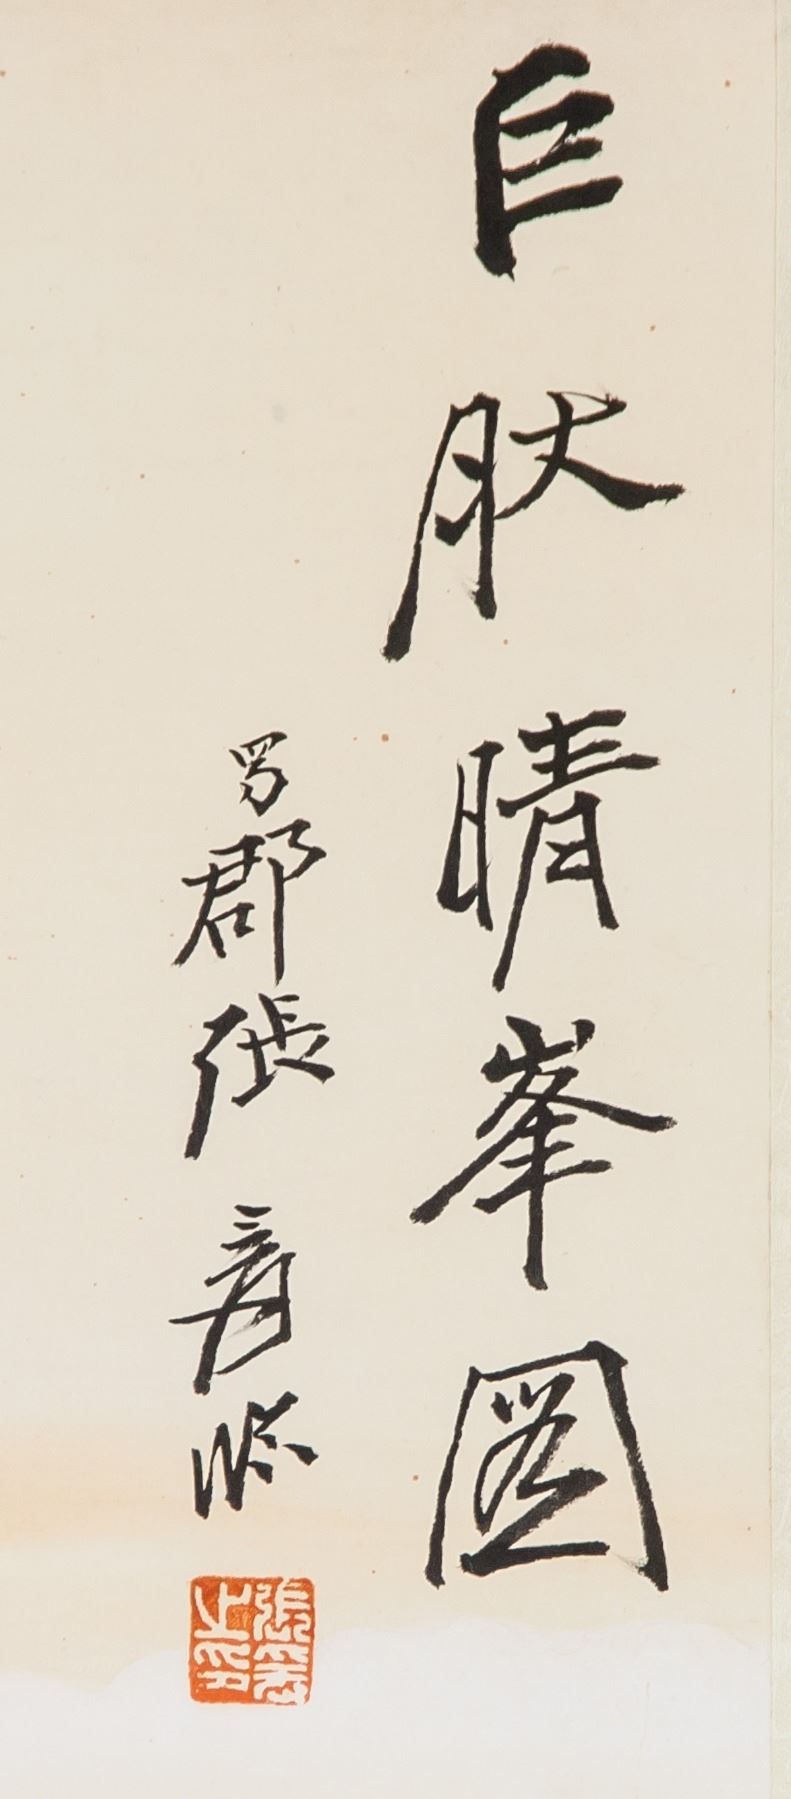 巨肰晴峯圖
蜀郡張爰臨
張爰之印